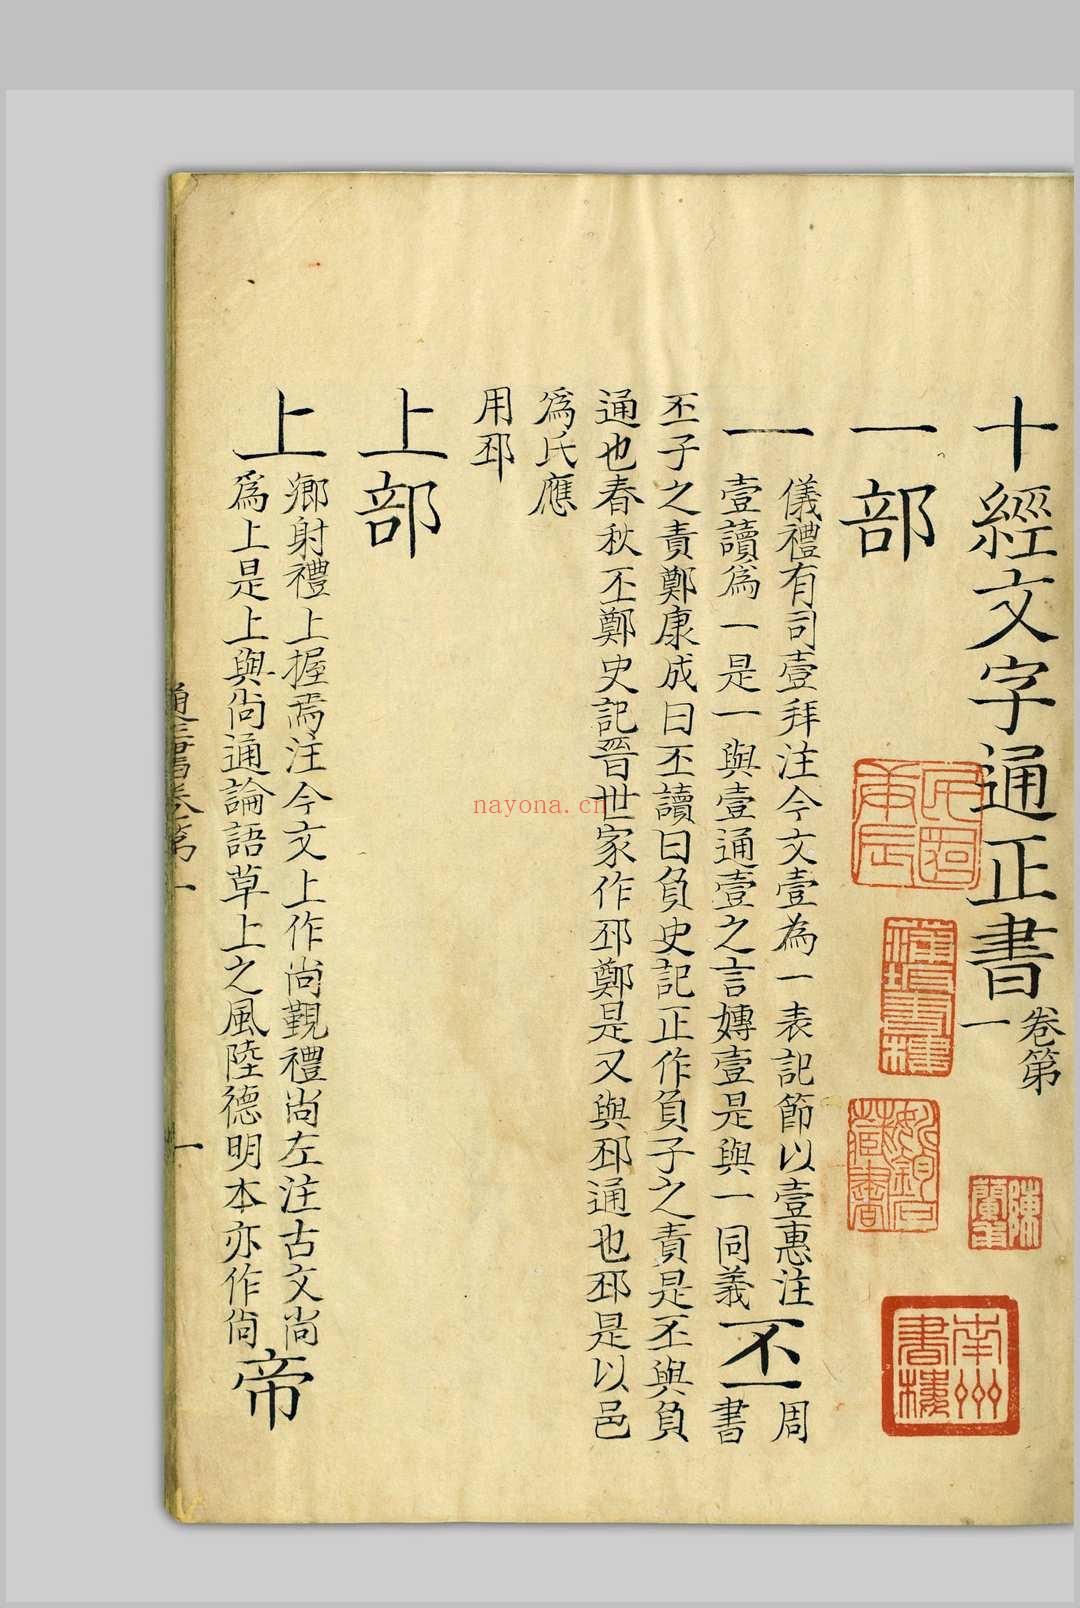 十經文字通正書卷第一
一部
一儀禮有司壹拜注今文壹為一表記節以壹惠注
壹讀爲一是一與壹通壹之言嫥壹是與一同義丕周書
丕子之責鄭康成曰丕讀曰負史記正作負子之責是丕與負
通也春秋丕鄭史記晉世家作邳鄭是又與邳通也邳是以邑
爲氏應
用邳
上部
上鄉射禮上握焉注今文上作尚覲禮尚左注古文尚
爲上是上與尚通論語草上之風陸德明本亦作尚帝
一
南州書樓
陳蘭甫
nayona.cn